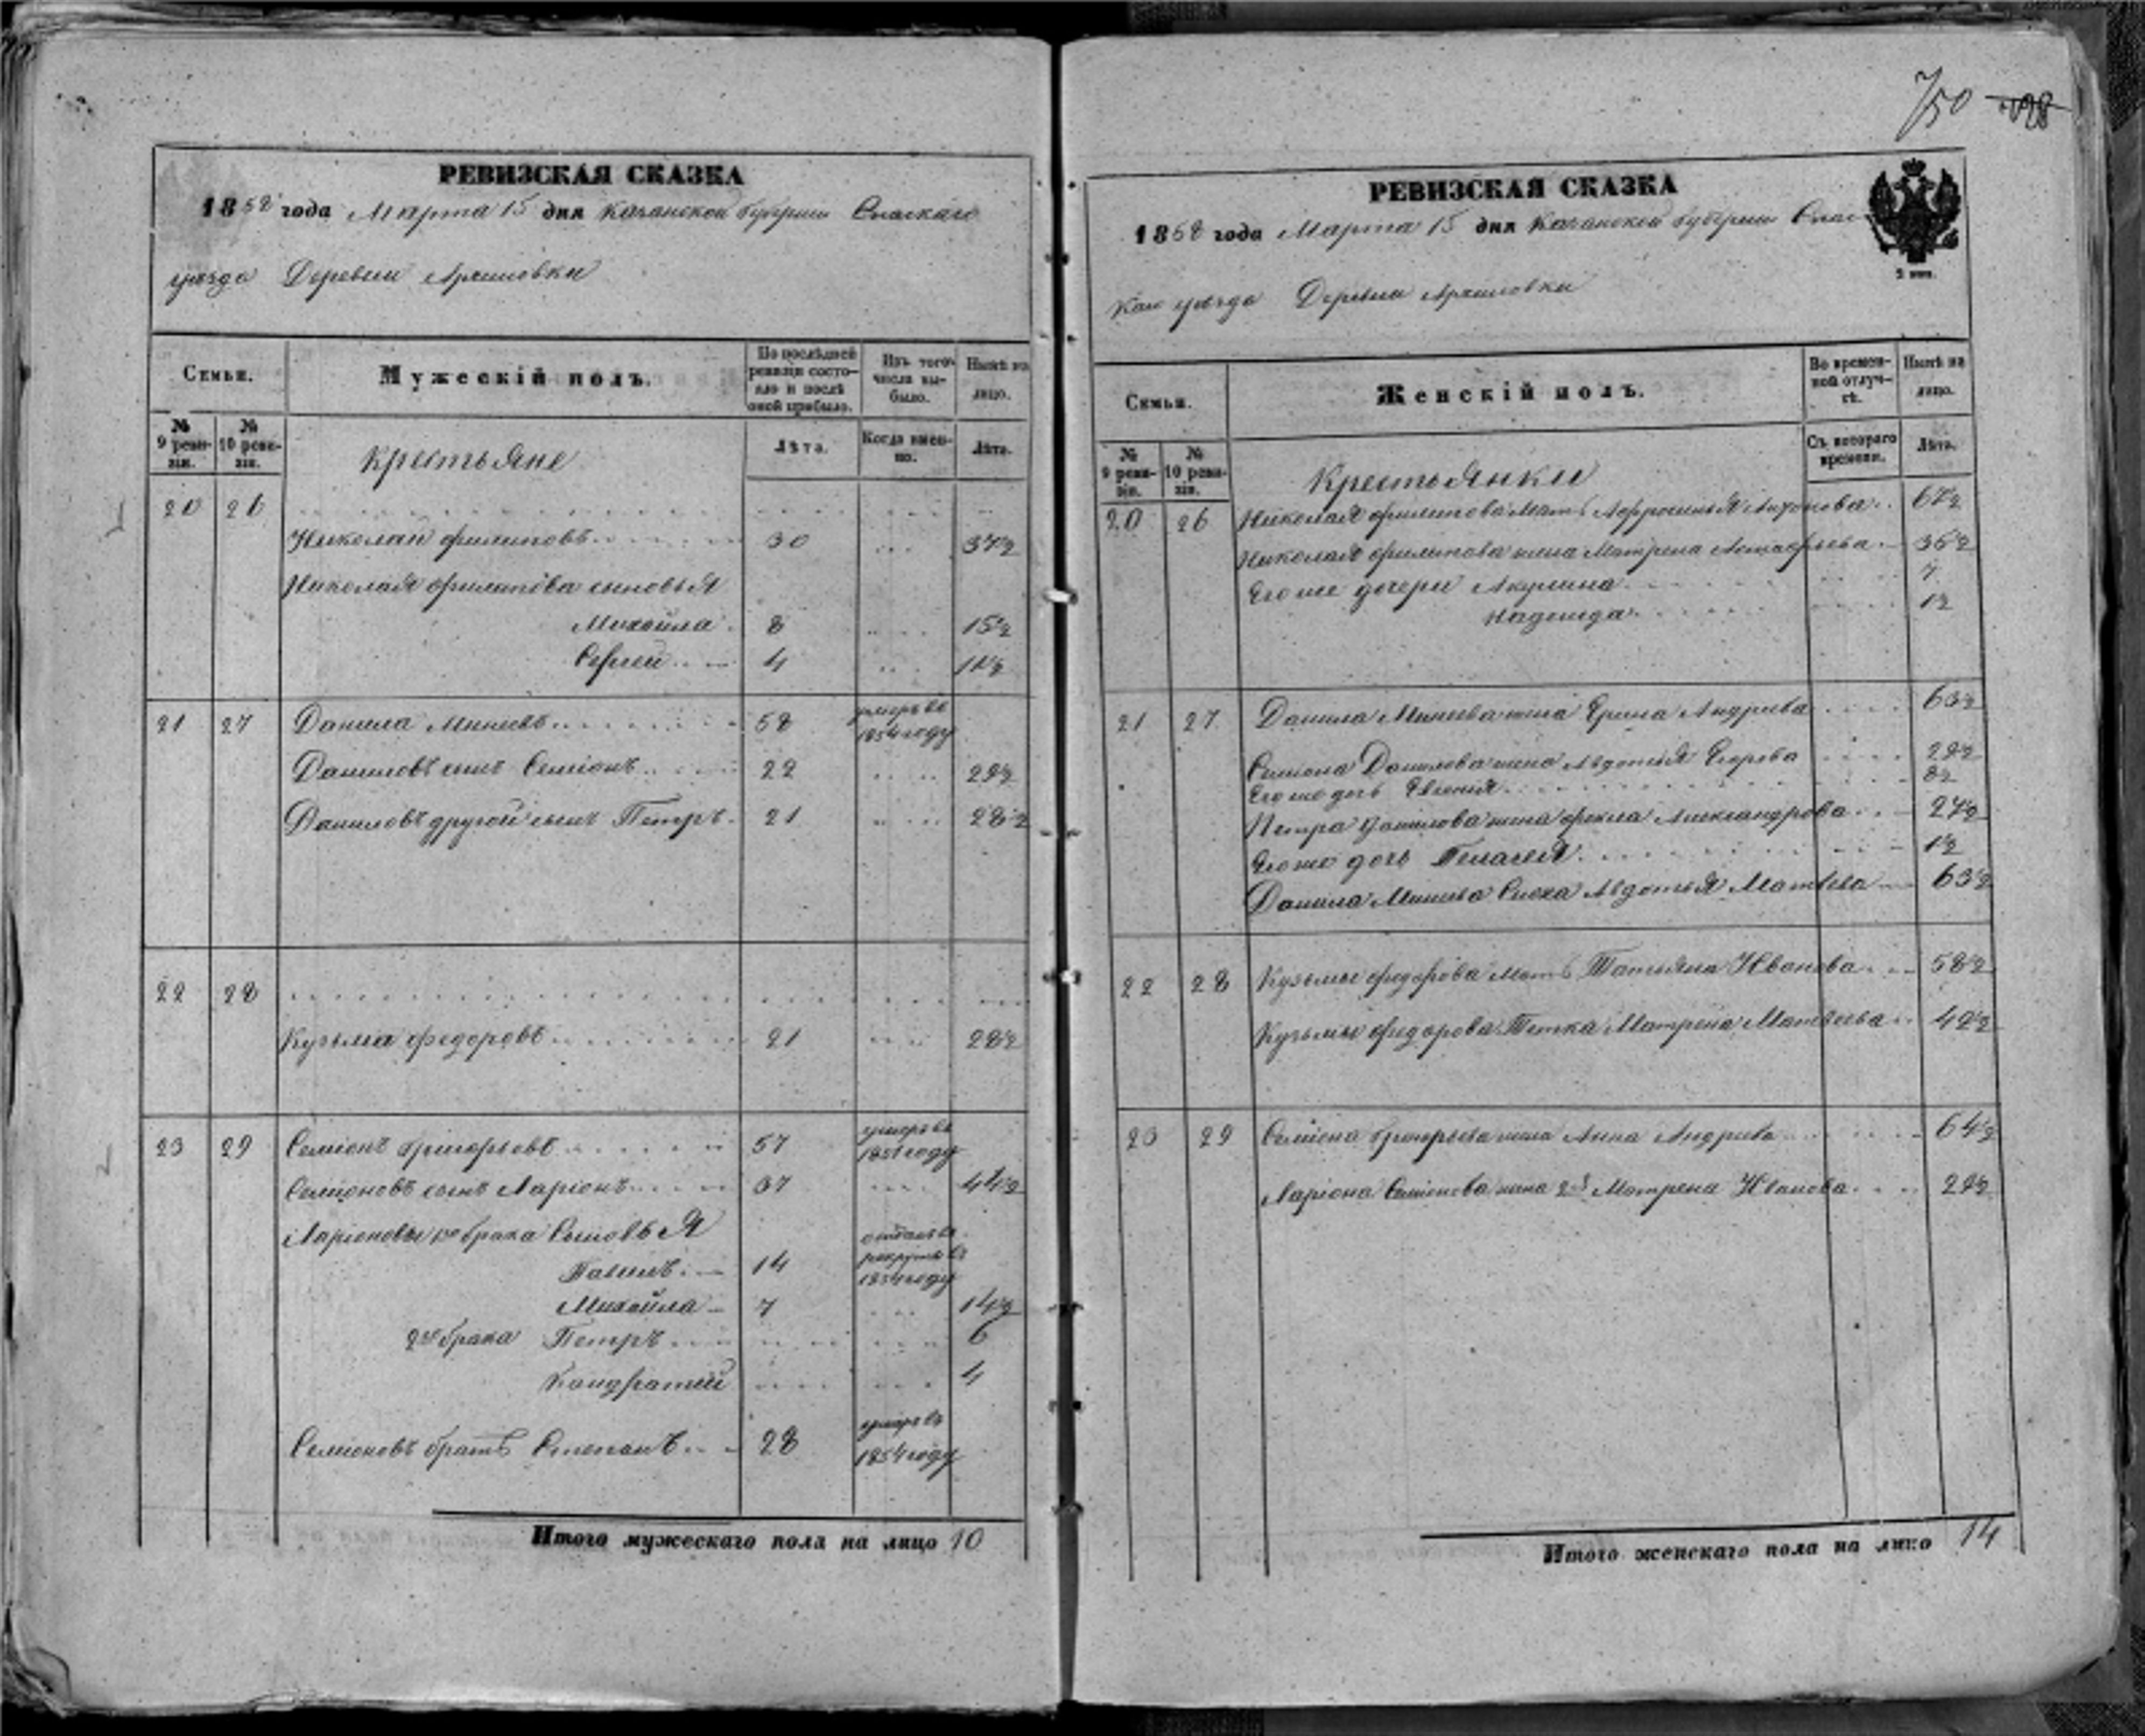 750
РЕВИЗСКАЯ СКАЗКА
1858 года Марта 15 дня Казанской губернии Спаскаго
уѣзда Деревни
Семьи.
Мужескiй полъ.
По послѣдней ревизiи состояло и послѣ оной прибыло.
Изъ того числа выбыло.
Нынѣ на лицо.
№ 9 ревизiи.
№ 10 ревизiи.
Крестьяне
Лѣта.
Когда именно.
Лѣта.
20 26
Николай Филиповъ 30 37½
Николая Филипова сыновья
Михайла 8 15½
Сергей 4 11½
21 27 Данила Минеевъ 58 умеръ въ 1854 году
Даниловъ сынъ Семiонъ 22 29½
Даниловъ другой сынъ Петръ 21 28½
22 28
Кузьма Федоровъ 21 28½
23 29 Семiонъ Григорьевъ 57 умеръ въ году
Семiоновъ сынъ Ларiонъ 37 44½
Ларiоновы 1го брака Сыновья
14 отданъ въ рекруты въ 1854 году
Михайла 7 14½
2го брака Петръ 6
Кондратий 4
Семiоновъ братъ Степанъ 28 умеръ въ 1854 году
Итого мужескаго пола на лицо 10
РЕВИЗСКАЯ СКАЗКА
1858 года Марта 15 дня Казанской губернiи Спас
каго уѣзда Деревни
2 коп.
Семьи.
Женскiй полъ.
Во временной отлучкѣ.
Нынѣ на лицо.
№ 9 ревизiи.
№ 10 ревизiи.
Крестьянки
Съ котораго времени.
Лѣта.
20 26 Николая Филипова мать Афросинья Антонова 67½
Николая Филипова жена Матрена Астафьева 36½
Его же дочери Акулина 7
Надежда 1½
21 27 Данила Минеева жена Ерина Андреева 63½
Семiона Данилова жена Авдотья Егорова 29½
Его же дочь Евгения 8½
Петра Данилова жена Фекла Александрова 27½
Его же дочь Пелагея 1½
Данила Минеева Сноха Авдотья Матвеева 63½
22 28 Кузьмы Федорова мать Татьяна Иванова 58½
Кузьмы Федорова Тетка Матрена Матвеева 49½
23 29 Семiона Григорьева жена Анна Андреева 64½
Ларiона Семiонова жена 2я Матрена Иванова 29½
Итого женскаго пола на лицо 14